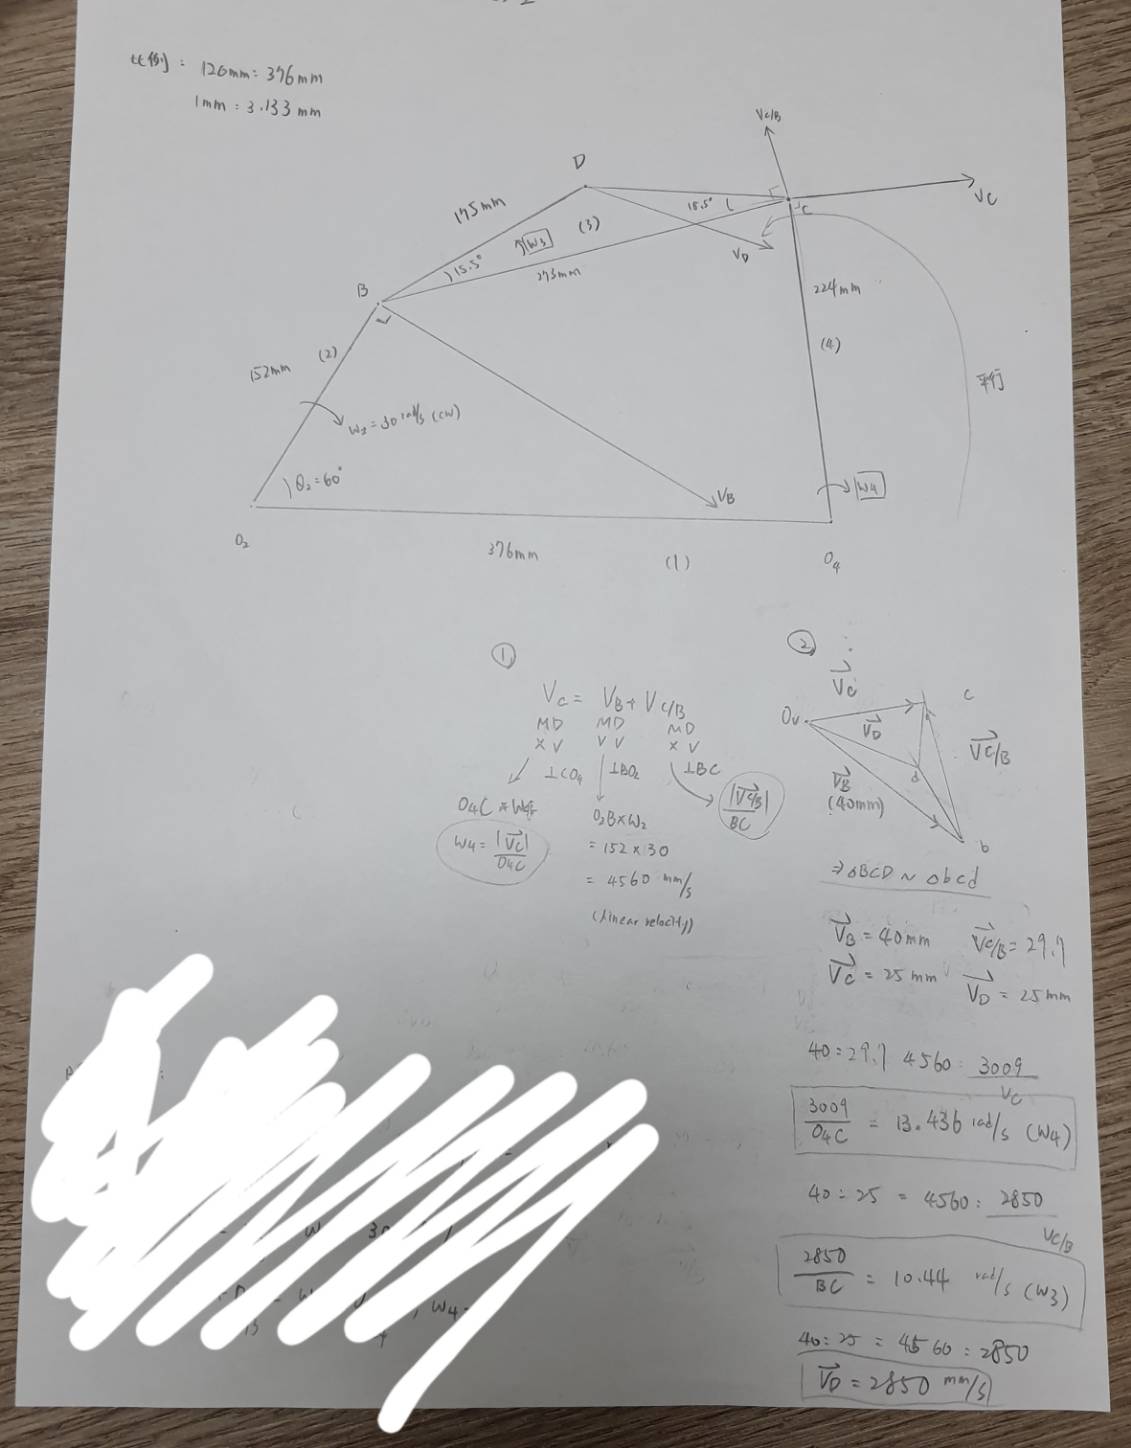 比例: 120mm = 376mm
1mm = 3.133 mm
VC/B
D
VC
C
145mm
(3)
18.5°
W3
15.5°
VD
273mm
B
224mm
(4)
(2)
152mm
平行
W2 = 30 rad/s (CW)
θ2 = 60°
VB
W4
O2
376mm
(1)
O4
①
VC = VB + VC/B
MD MD MD
XV VV XV
⊥CO4 ⊥BO2 ⊥BC
O4C * W4
W4 = |VC| / O4C
O2B×W2
= 152 × 30
= 4560 mm/s
(linear velocity)
|VC/B| / BC
②
VC
c
Ov
VD
VC/B
d
VB
(40mm)
b
⇒ △BCD ~ △bcd
VB = 40mm VC/B = 29.7
VC = 25 mm VD = 25mm
40 : 29.7 4560 : 3009
VC
3009 / O4C = 13.436 rad/s (W4)
40 : 25 = 4560 : 2850
VC/B
2850 / BC = 10.44 rad/s (W3)
40 : 25 = 4560 : 2850
VD = 2850 mm/s